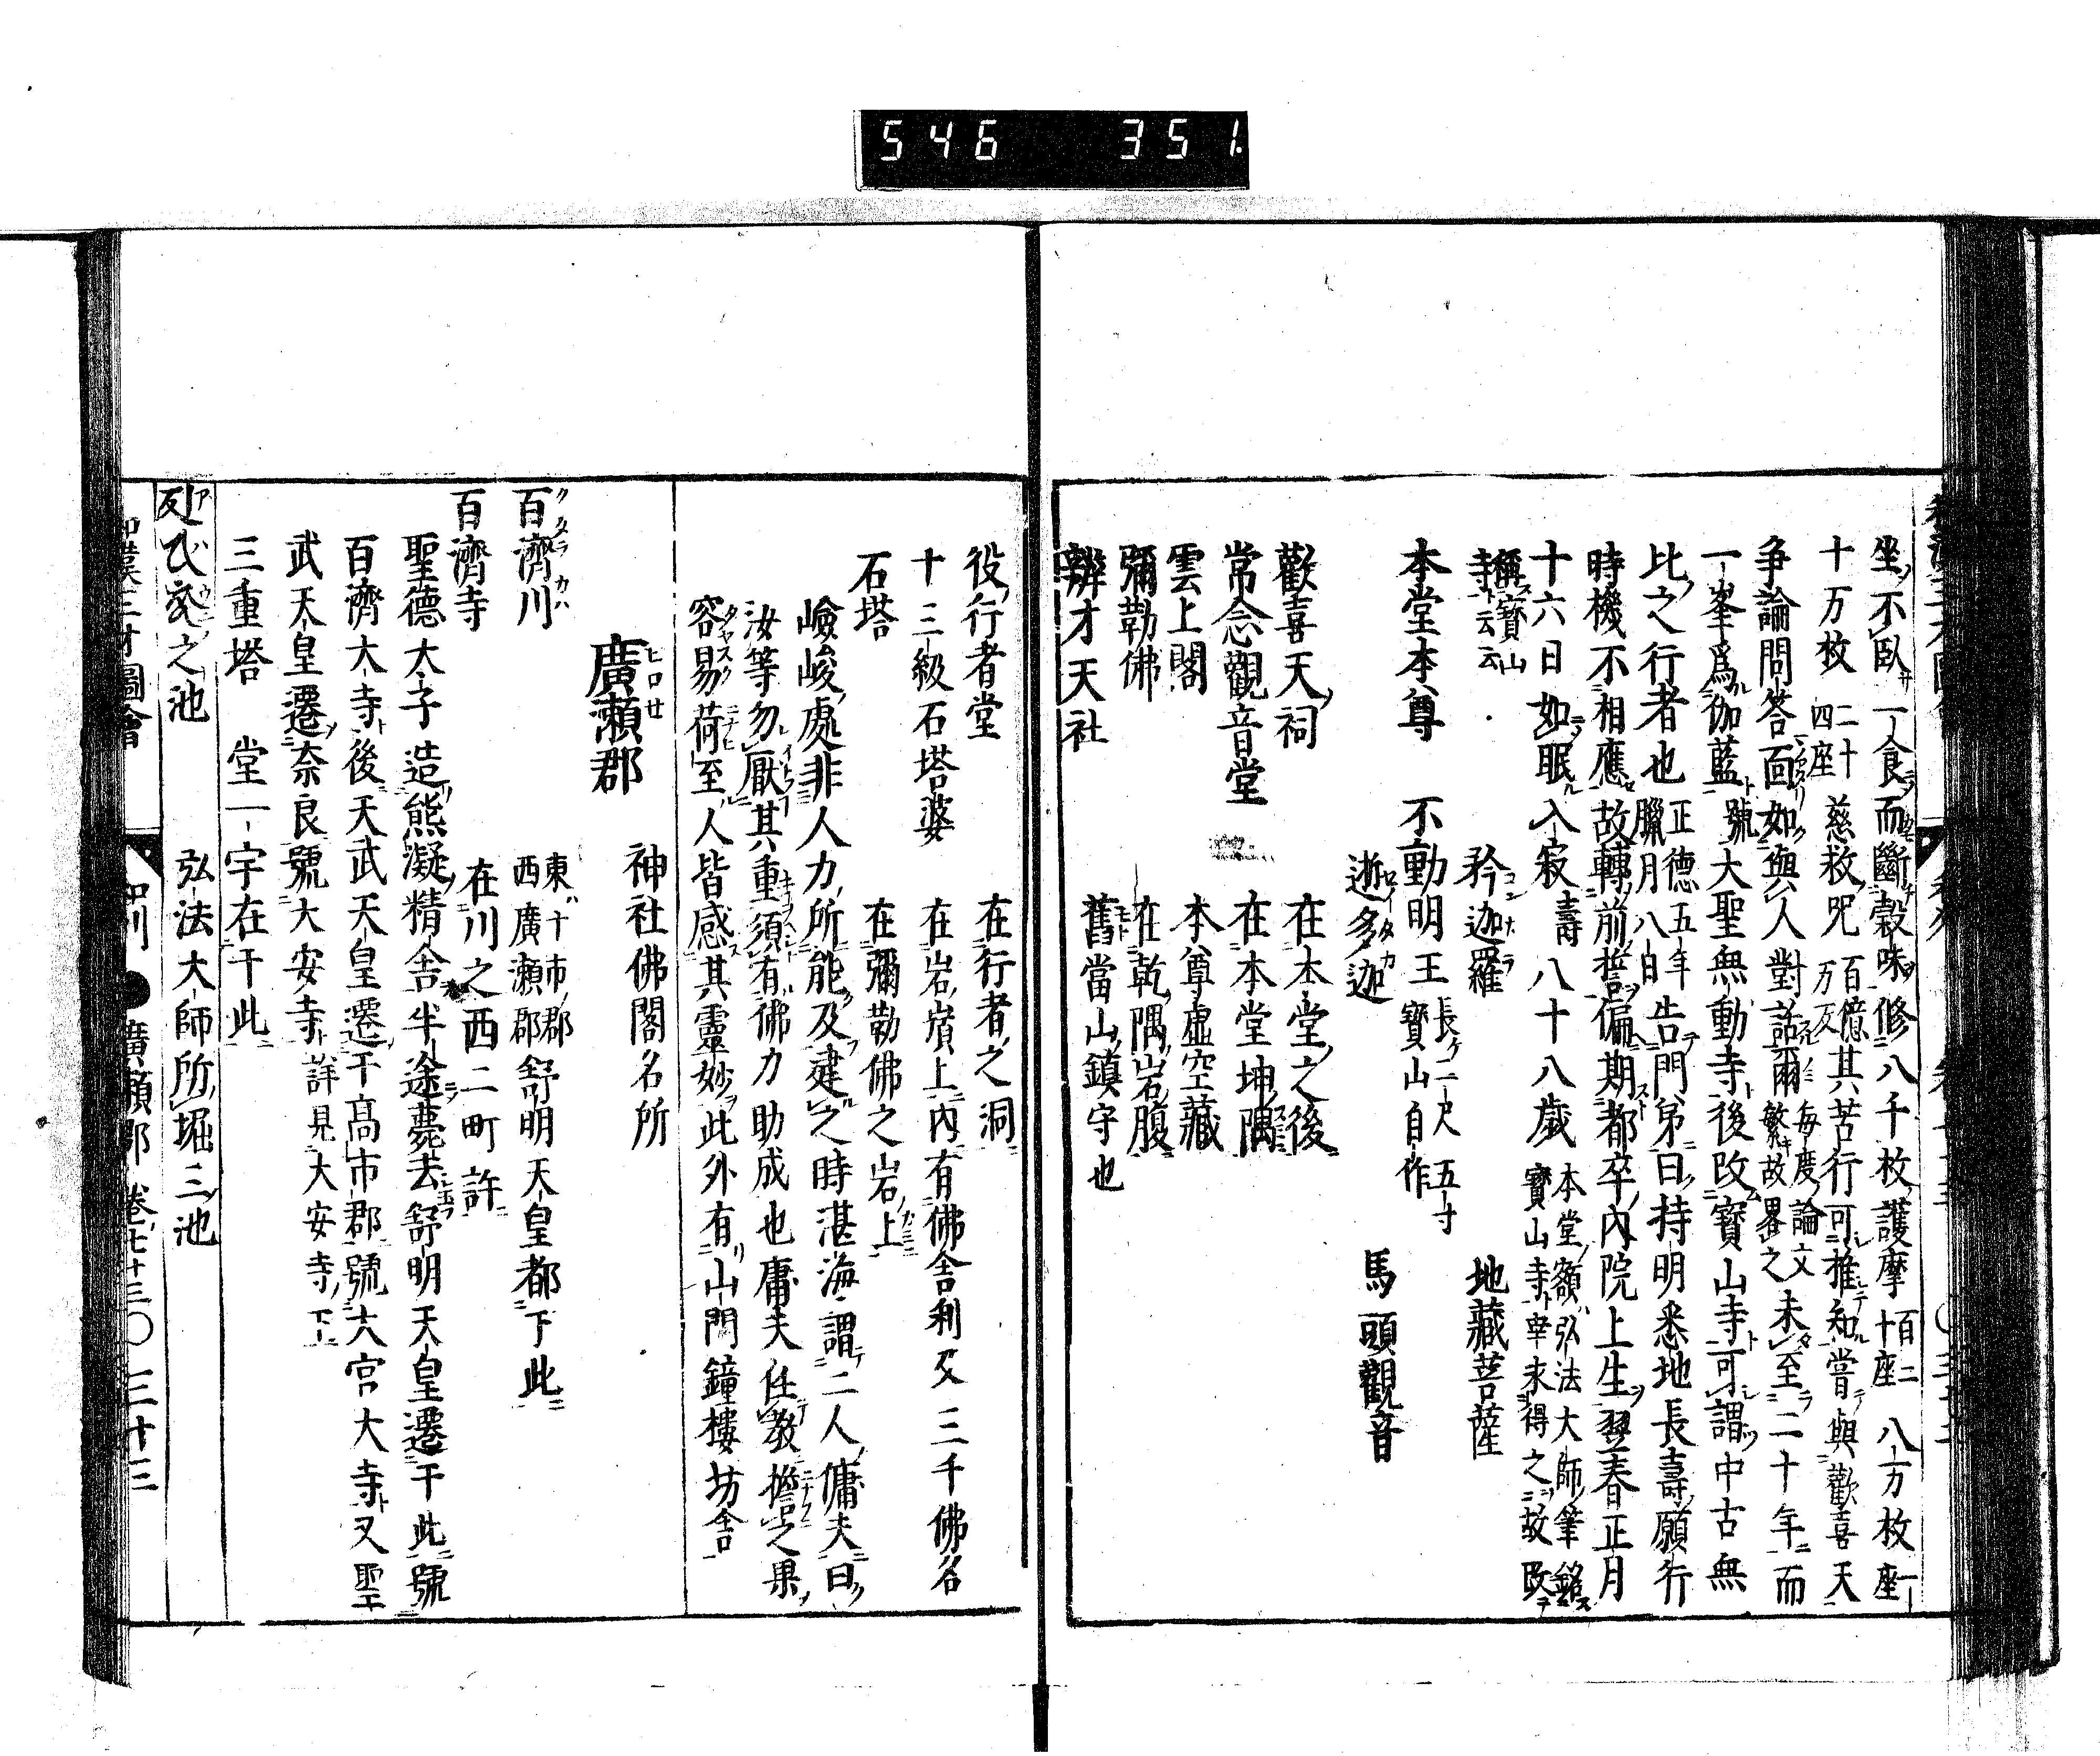 546 351.
坐不臥一食而斷穀味修八千枚護摩百二十座八万枚一座
十万枚二十四座慈救咒百億万反其苦行可推知嘗與歡喜天
争論問答面如與人對話爾每度論文繁故畧之未至二十年而
一峯爲伽藍號大聖無動寺後改寶山寺可謂中古無
比之行者也正德五年臘月八日告門弟曰持明悉地長壽願行
時機不相應故轉前誓偏期都卒內院上生翌春正月
十六日如眠入寂壽八十八歲本堂額弘法大師筆銘寶山寺幸求得之故改
稱寶山寺云云
矜迦羅 地藏菩薩
本堂本尊 不動明王長二尺五寸寶山自作
逝多迦 馬頭觀音
歡喜天祠 在本堂之後
常念觀音堂 在本堂坤隅
雲上閣 本尊虛空藏
彌勒佛 在乾隅岩腹
辨才天社 舊當山鎮守也
役行者堂 在行者之洞
十三級石塔婆 在岩嶺上內有佛舍利及三千佛名
石塔 在彌勒佛之岩上
嶮峻處非人力所能及建之時湛海謂二人傭夫曰
汝等勿厭其重須有佛力助成也庸夫任教擔之果
容易荷至人皆感其靈妙此外有山門鐘樓坊舍
廣瀨郡 神社佛閣名所
百濟川 東十市郡西廣瀨郡 舒明天皇都下此
百濟寺 在川之西二町許
聖德太子造熊凝精舍半途薨去舒明天皇遷于此號
百濟大寺後天武天皇遷于高市郡號大宮大寺又聖
武天皇遷奈良號大安寺詳見大安寺下
三重塔 堂一宇在于此
之池 弘法大師所堀三池
和漢三才圖會 和州 廣瀨郡 卷七十三 三十三